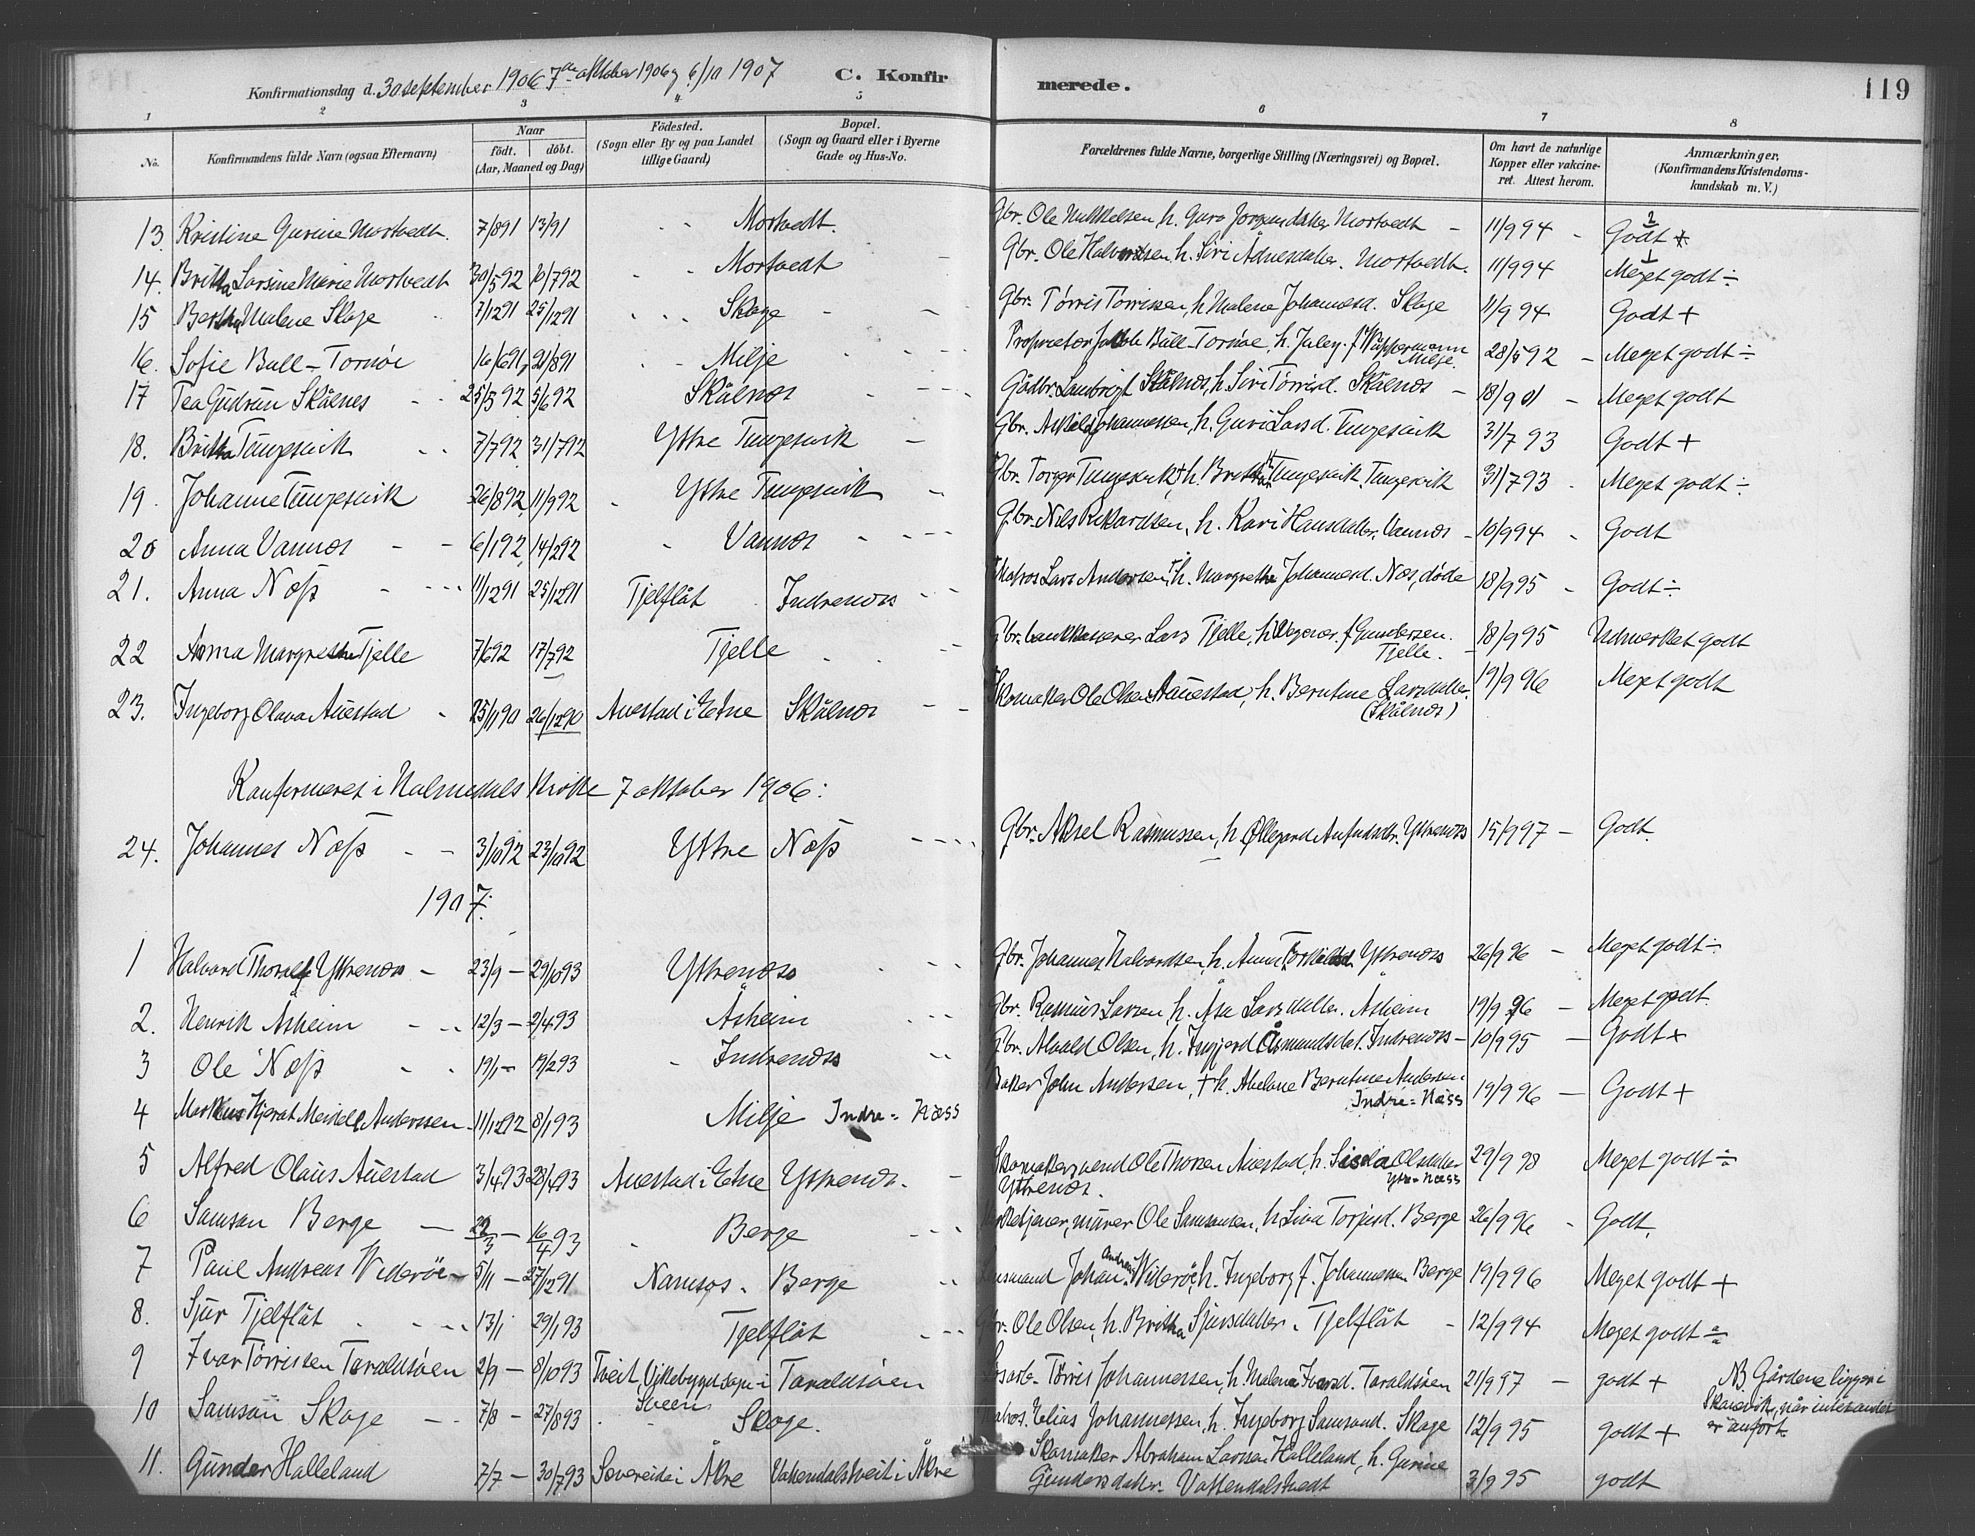 Konfirmationsdag d. 30 september 1906 7de oktober 1906 og 6/10 1907 C. Konfirmerede. 119
1 2 3 4 5 6 7 8
No. Konfirmandens fulde Navn (ogsaa Efternavn) Naar født. døbt. (Aar, Maaned og Dag) Fødested. (Sogn eller By og paa Landet tillige Gaard) Bopæl. (Sogn og Gaard eller i Byerne Gade og Hus-No. Forældrenes fulde Navne, borgerlige Stilling (Næringsvei) og Bopæl. Om havt de naturlige Kopper eller vakcineret. Attest herom. Anmærkninger. (Konfirmandens Kristendomskundskab m. V.)
13. Kristine Gurine Mortvedt. 7/891 13/91 Mortvedt. Gbr. Ole Mikkelsen, h. Guro Jorgensdatter Mortvedt 11/994 Godt +
14. Britha Larsine Marie Mortvedt 30/592 10/792 Mortvedt Gbr. Ole Halvorsen, h. Siri Ådnesdatter. Mortvedt. 11/994 Meget godt ÷
15 Bertha Malene Skage 7/1291 25/1291 Skage Gbr. Tørris Tørrissen, h. Malene Johannesd. Skage 11/994 Godt +
16. Sofie Bull-Tornøe 16/691, 21/891 Milje Proprietær Jakob Bull-Tornøe, h. Juley. f. Wuppermann Milje. 28/592 Meget godt ÷
17 Tea Gudrun Skålnes 25/592 5/692 Skålnæs Gådbr. Lambrigt Skålnæs, h. Siri Tørrisd. Skålnæs 18/901 Meget godt
18. Britha Tungesvik 7/792 31/792 Ystre Tungesvik Gbr. Askild Johannessen, h. Guri Larsd. Tungesvik 31/793 Godt +
19. Johanne Tungesvik 26/892 11/992 Ystre Tungesvik Gbr. Torger Tungesvik, h. Britha Tungesvik, Tungesvik 31/793 Meget godt ÷
20 Anna Vannæs 6/192 14/292 Vannæs Gbr. Nils Rikardsen, h. Kari Hansdatter, Vannæs 10/994 Godt
21. Anna Næss 11/1291 25/1291 Tjelflåt Indrenæs Matros Lars Andersen, h. Margrethe Johannesd. Næs, døde 18/995 Godt ÷
22 Anna Margrethe Tjelle 7/692 17/792 Tjelle Gbr. bankkasserer Lars Tjelle, h. f. Gundersen. Tjelle. 18/995 Udmerket godt
23. Ingeborg Olava Auestad 25/1190 26/1290 Auestad i Etne Skålnæs Skomaker Ole Olsen Auestad, h. Berntine Larsdatter. (Skålnæs) 19/996 Meget godt
Konfirmeret i Holmedals kirke 7 oktober 1906:
24. Johannes Næss 3/1092 23/1092 Ystre Næss Gbr. Aksel Rasmussen, h. Øllegard Anfindsdtr. Ystrenæs 15/997 Godt.
1907.
1 Halvard Thoralf Ystrenæs 23/9 29/1093 Ystrenæss Gbr. Johannes Halvardsen, h. Anna Torkildsd. Ystrenæs 26/996 Meget godt ÷
2. Henrik Åsheim 12/3 2/493 Åsheim Gbr. Rasmus Larsen, h. Åsa Larsdatter. Åsheim 19/996 Meget godt.
3 Ole Næss 19/1 19/293 Indrenæs Gbr. Alvald Olsen, h. Ingjerd Åsmundsdat. Indrenæs 10/995 Godt +
4 Markus Hjerat Meidell Anderssen 11/1292 8/193 Milje Indre-Næss Baker John Andersen, + h. Abelone Berntine Andersen Indre-Næss 19/996 Godt +
5 Alfred Olaus Auestad 3/493 28/493 Auestad i Etne Ystrenæs. Skomakersvend Ole Thorsen Auestad, h. Sisela Olsdatter Ystrenæs. Ytre-Næss 29/998 Meget godt ÷
6 Samson Berge 22/3 16/4 93 Berge Kirketjener, murer Ole Samsonsen, h. Lina Torjusd. Berge 26/996 Godt.
7 Paul Andreas Widerøe 5/11 27/1291 Namsos. Berge Lensmand Johan Andreas Widerøe, h. Ingeborg f. Johannessen Berge 19/996 Meget godt +
8. Sjur Tjelflåt 13/1 29/193 Tjelflåt Gbr. Ole Olsen, h. Britha Sjursdatter. Tjelflåt 12/994 Meget godt ÷
9 Ivar Tørrissen Taraldsøen 2/9 8/1093 Tveit, Vikebygd sogn i Sveen Taraldsøen Losarb. Tørris Johannessen, h. Malena Ivarsd. Taraldsøen 21/997 godt + NB Gårdene ligger i Skånevik, når intet andet er anført.
10 Samson Skage 7/8 27/893 Skage. Elias Johannessen, h. Ingeborg Samsond. Skage 12/995 godt +
11. Gunder Halleland 7/7 30/793 Sævereide i Åkre Vakendalstveit i Åkre Skomaker Abraham Larsen Halleland, h. Gurine Gundersdatter. Vattendalstvedt 3/995 godt